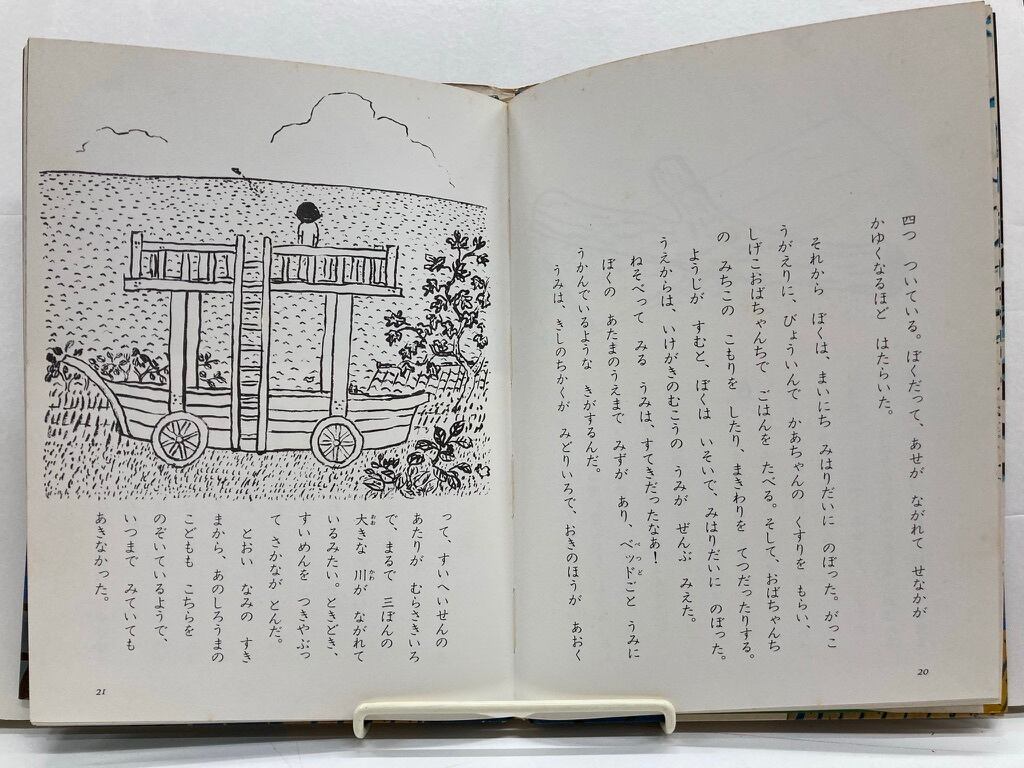 四つ ついている。ぼくだって、あせが ながれて せなかが
かゆくなるほど はたらいた。
それから ぼくは、まいにち みはりだいに のぼった。がっこ
うがえりに、びょういんで かあちゃんの くすりを もらい、
しげこおばちゃんちで ごはんを たべる。そして、おばちゃんち
の みちこの こもりを したり、まきわりを てつだったりする。
ようじが すむと、ぼくは いそいで、みはりだいに のぼった。
うえからは、いけがきのむこうの うみが ぜんぶ みえた。
ねそべって みる うみは、すてきだったなあ!
ぼくの あたまのうえまで みずが あり、ベッドごと うみに
うかんでいるような きがするんだ。
うみは、きしのちかくが みどりいろで、おきのほうが あおく
20
って、すいへいせんの
あたりが むらさきいろ
で、まるで 三ぼんの
大きな 川が ながれて
いるみたい。ときどき、
すいめんを つきやぶっ
て さかなが とんだ。
とおい なみの すき
まから、あのしろうまの
こどもも こちらを
のぞいているようで、
いつまで みていても
あきなかった。
21